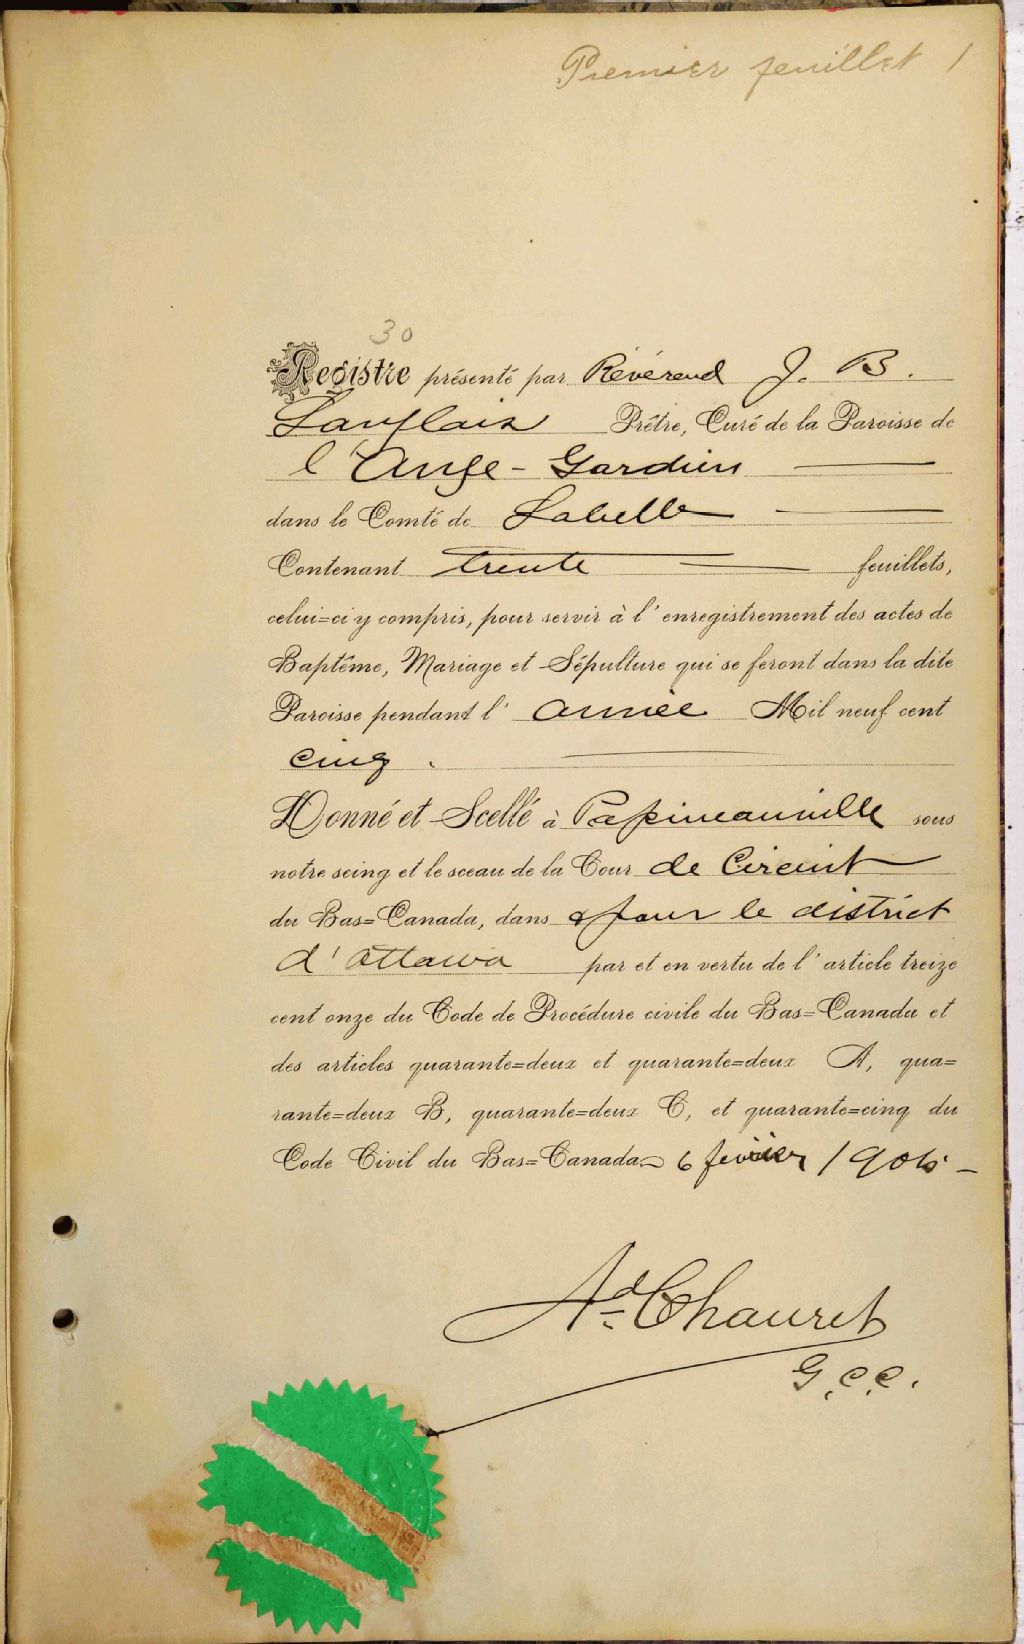 Premier feuillet 1
30
Registre présenté par Révérend J. B.
Langlais Prêtre, Curé de la Paroisse de
l'Ange-Gardien
dans le Comté de Labelle
Contenant trente feuillets,
celui=ci y compris, pour servir à l'enregistrement des actes de
Baptême, Mariage et Sépulture qui se feront dans la dite
Paroisse pendant l'année Mil neuf cent
cinq.
Donné et Scellé à Papineauville sous
notre seing et le sceau de la Cour de Circuit
du Bas=Canada, dans & pour le district
d'Ottawa par et en vertu de l'article treize
cent onze du Code de Procédure civile du Bas=Canada et
des articles quarante=deux et quarante=deux A, qua=
rante=deux B, quarante=deux C, et quarante=cinq du
Code Civil du Bas=Canada 6 février 1905-
Ad. Chauret
G.C.C.